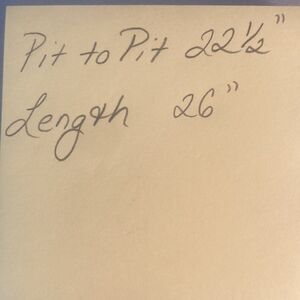 Pit to Pit 22½"
Length 26"